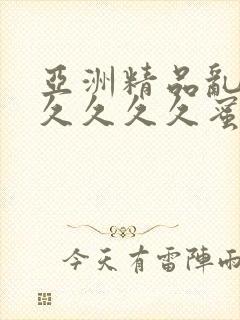 亞洲精品亂
久久久久蜜
今天有雷陣雨